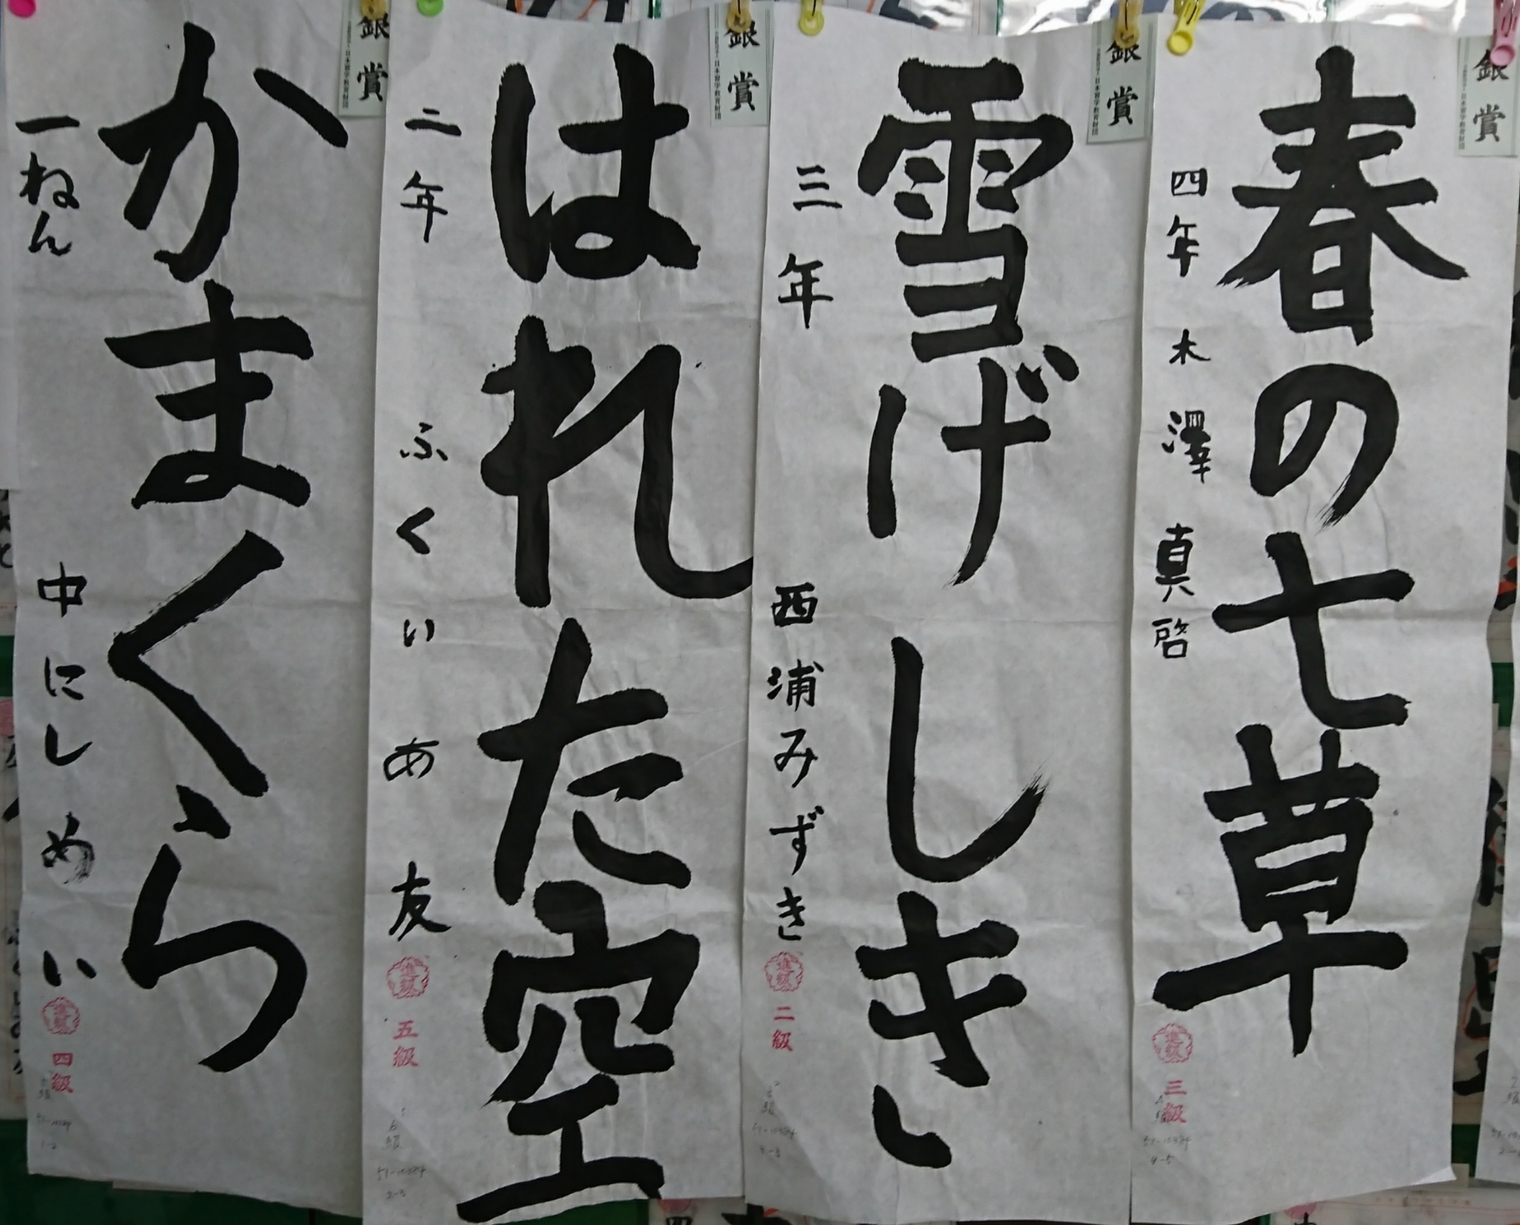 銀賞
春の七草
四年 木澤真啓
三級
銀賞
雪げしき
三年 西浦みずき
進級
二級
銀賞
はれた空
二年 ふくいあ友
進級
五級
銀賞
かまくら
一ねん 中にしめい
進級
四級